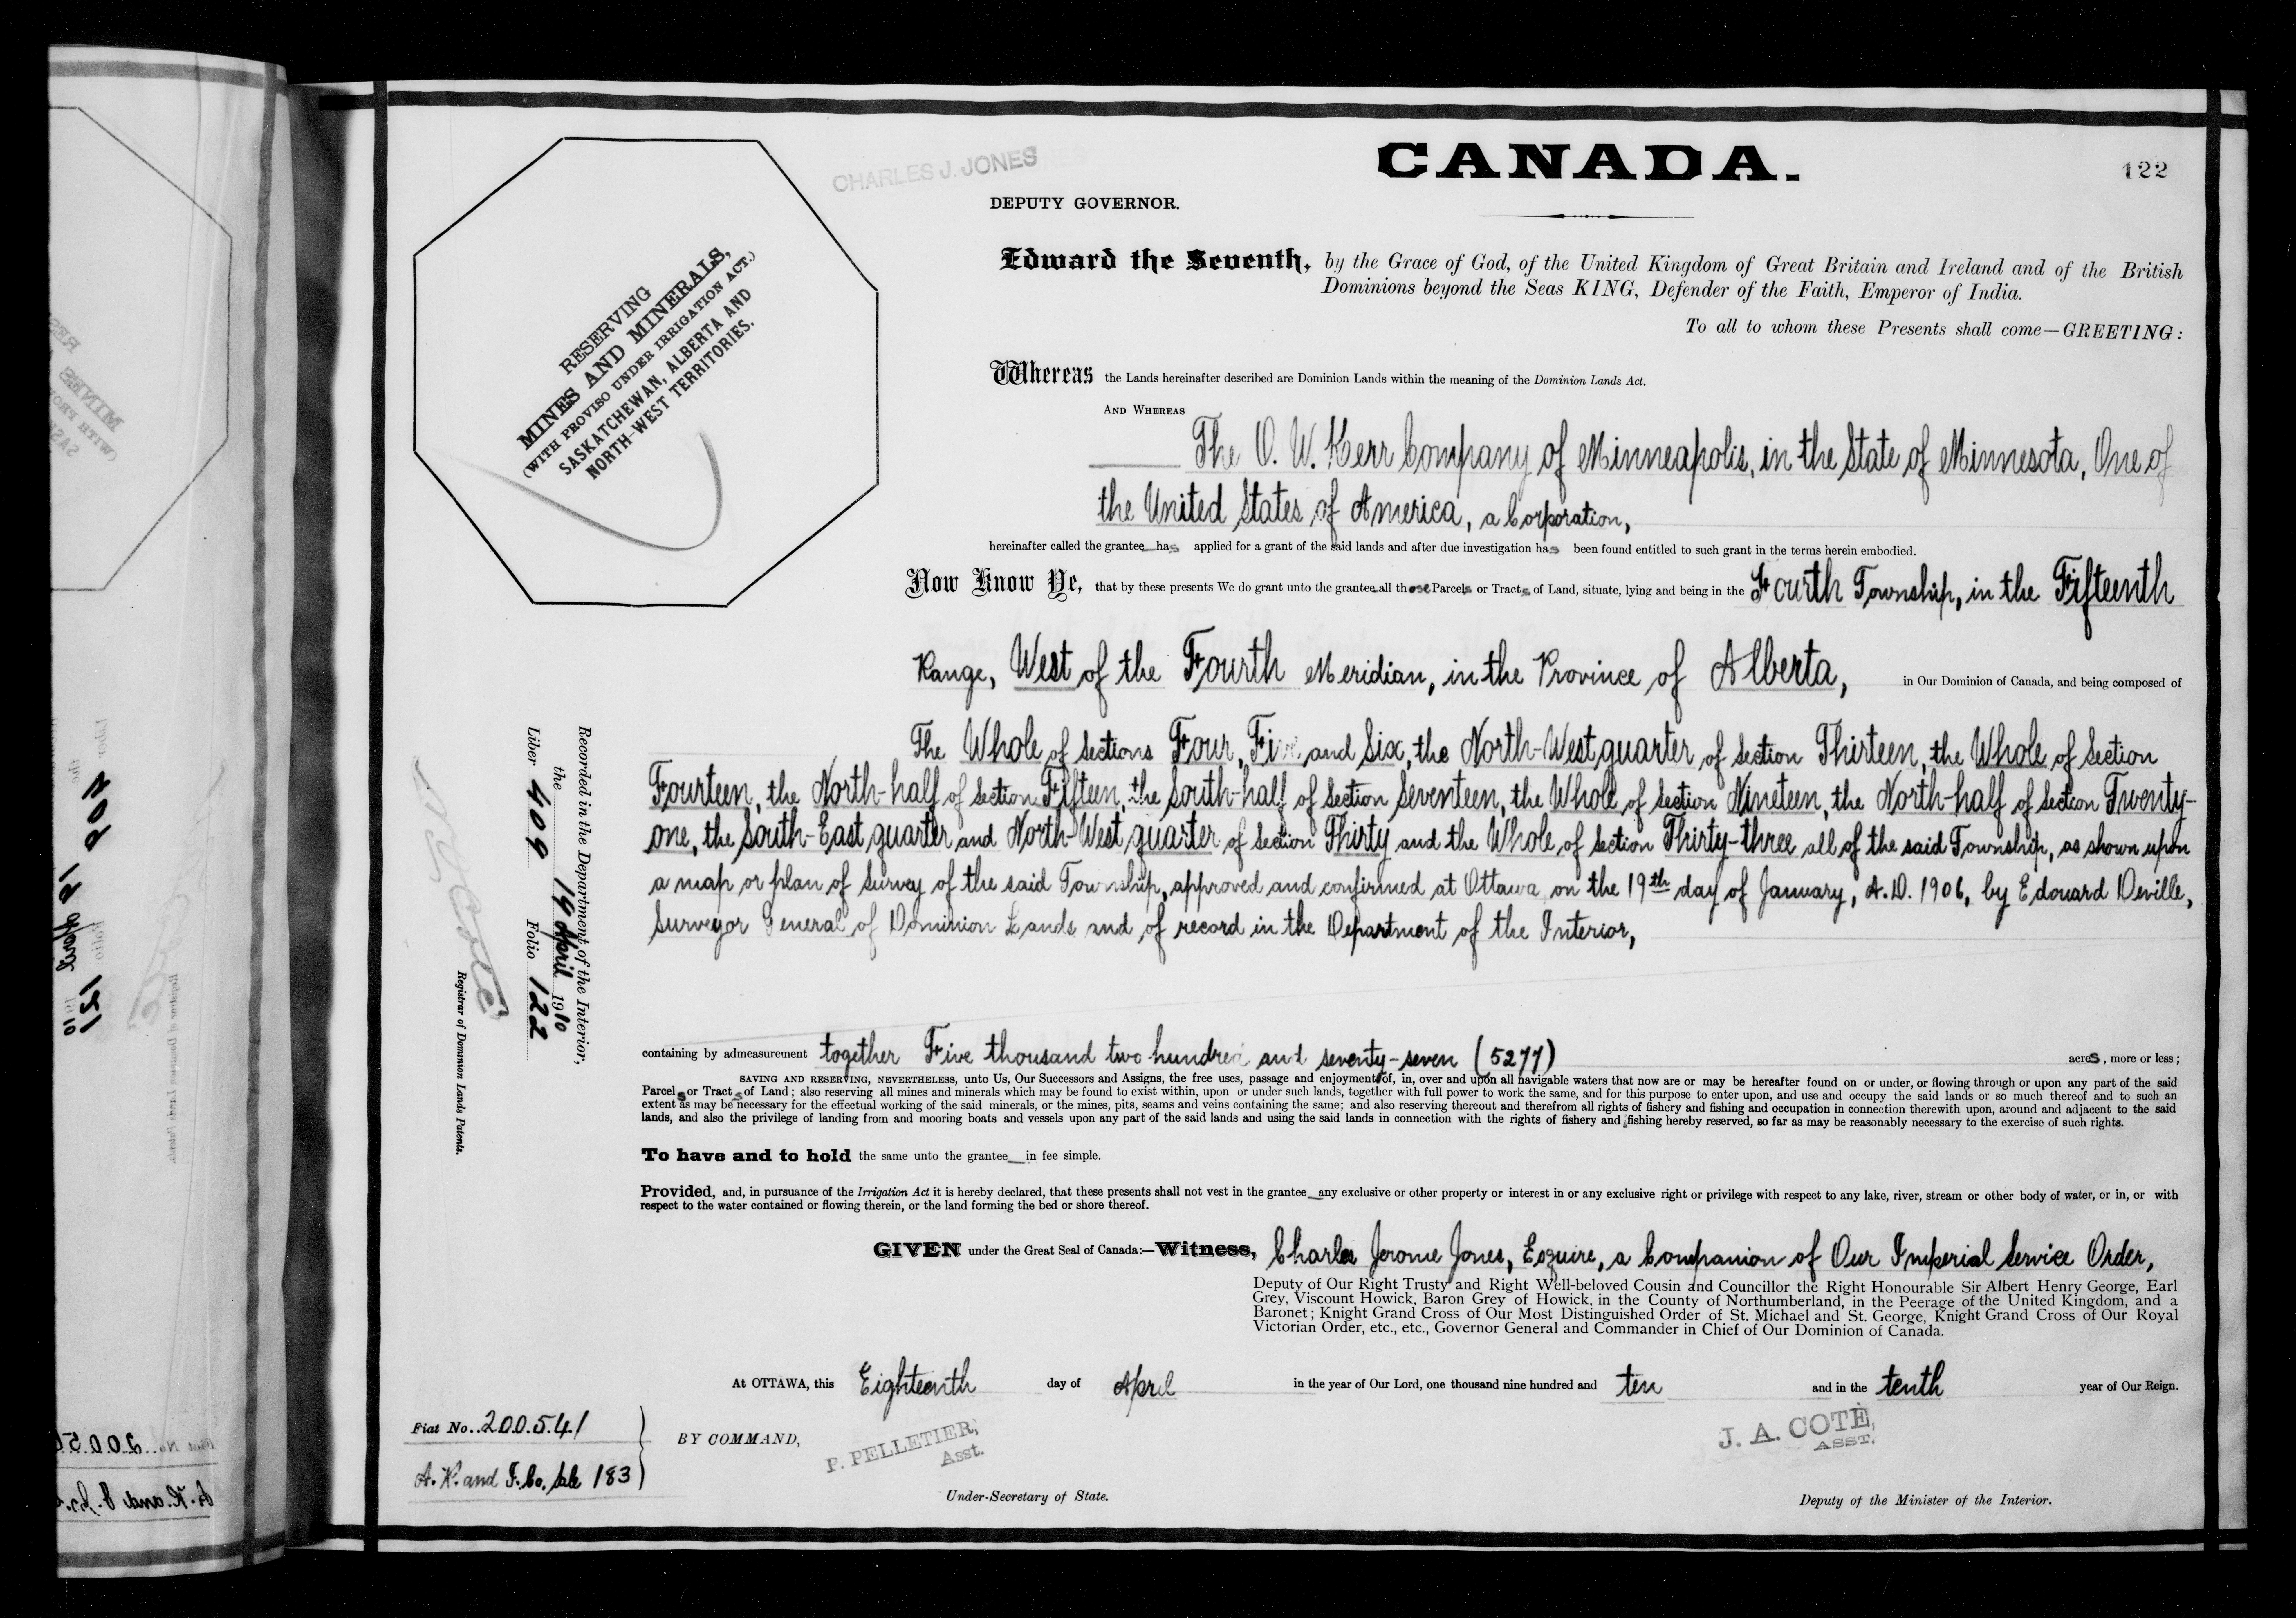 CHARLES J. JONES
CANADA.
122
DEPUTY GOVERNOR.
RESERVING
MINES AND MINERALS,
(WITH PROVISO UNDER IRRIGATION ACT.)
SASKATCHEWAN, ALBERTA AND
NORTH-WEST TERRITORIES.
Edward the Seventh, by the Grace of God, of the United Kingdom of Great Britain and Ireland and of the British
Dominions beyond the Seas KING, Defender of the Faith, Emperor of India.
To all to whom these Presents shall come—GREETING:
Whereas the Lands hereinafter described are Dominion Lands within the meaning of the Dominion Lands Act.
AND WHEREAS
The O. W. Kerr Company of Minneapolis, in the State of Minnesota, One of
the United States of America, a Corporation,
hereinafter called the grantee has applied for a grant of the said lands and after due investigation has been found entitled to such grant in the terms herein embodied.
Now Know Ye, that by these presents We do grant unto the grantee all those Parcels or Tracts of Land, situate, lying and being in the Fourth Township, in the Fifteenth
Range, West of the Fourth Meridian, in the Province of Alberta, in Our Dominion of Canada, and being composed of
The Whole of Sections Four, Five and Six, the North-West quarter of Section Thirteen, the Whole of Section
Fourteen, the North-half of Section Fifteen, the South-half of Section Seventeen, the Whole of Section Nineteen, the North-half of Section Twenty-
one, the South-East quarter and North-West quarter of Section Thirty and the Whole of Section Thirty-three all of the said Township, as shown upon
a map or plan of Survey of the said Township, approved and confirmed at Ottawa on the 19th day of January, A.D. 1906, by Edouard Deville,
Surveyor General of Dominion Lands and of record in the Department of the Interior,
containing by admeasurement together Five thousand two hundred and seventy-seven (5277) acres, more or less;
SAVING AND RESERVING, NEVERTHELESS, unto Us, Our Successors and Assigns, the free uses, passage and enjoyment of, in, over and upon all navigable waters that now are or may be hereafter found on or under, or flowing through or upon any part of the said
Parcels or Tracts of Land; also reserving all mines and minerals which may be found to exist within, upon or under such lands, together with full power to work the same, and for this purpose to enter upon, and use and occupy the said lands or so much thereof and to such an
extent as may be necessary for the effectual working of the said minerals, or the mines, pits, seams and veins containing the same; and also reserving thereout and therefrom all rights of fishery and fishing and occupation in connection therewith upon, around and adjacent to the said
lands, and also the privilege of landing from and mooring boats and vessels upon any part of the said lands and using the said lands in connection with the rights of fishery and fishing hereby reserved, so far as may be reasonably necessary to the exercise of such rights.
To have and to hold the same unto the grantee in fee simple.
Provided, and, in pursuance of the Irrigation Act it is hereby declared, that these presents shall not vest in the grantee any exclusive or other property or interest in or any exclusive right or privilege with respect to any lake, river, stream or other body of water, or in, or with
respect to the water contained or flowing therein, or the land forming the bed or shore thereof.
GIVEN under the Great Seal of Canada:—Witness, Charles Jerome Jones, Esquire, a Companion of Our Imperial Service Order,
Deputy of Our Right Trusty and Right Well-beloved Cousin and Councillor the Right Honourable Sir Albert Henry George, Earl
Grey, Viscount Howick, Baron Grey of Howick, in the County of Northumberland, in the Peerage of the United Kingdom, and a
Baronet; Knight Grand Cross of Our Most Distinguished Order of St. Michael and St. George, Knight Grand Cross of Our Royal
Victorian Order, etc., etc., Governor General and Commander in Chief of Our Dominion of Canada.
At OTTAWA, this Eighteenth day of April in the year of Our Lord, one thousand nine hundred and ten and in the tenth year of Our Reign.
BY COMMAND,
P. PELLETIER,
Asst.
Under-Secretary of State.
J. A. COTÉ,
ASST.
Deputy of the Minister of the Interior.
Recorded in the Department of the Interior,
the 19 April 1910
Liber 409 Folio 122
Registrar of Dominion Lands Patents.
Fiat No. 200541
A. R. and I. Co. Sale 183